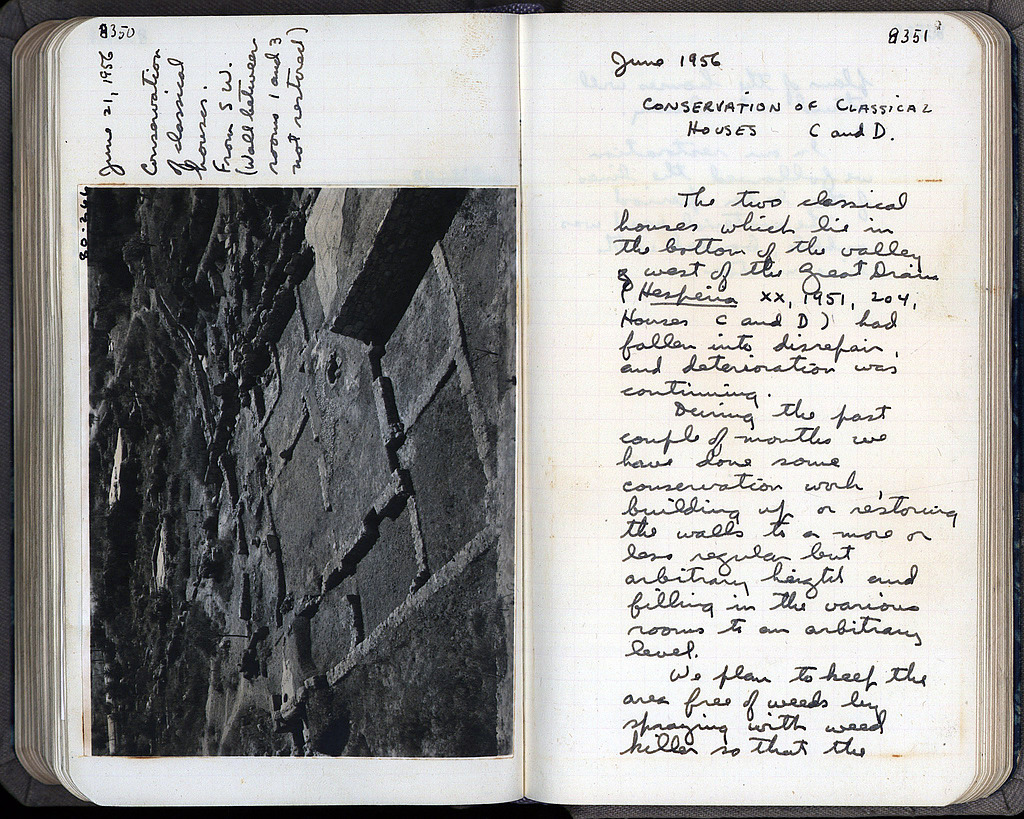 8350
June 21, 1956
Conservation
of classical
houses.
From S W.
(Wall between
rooms 1 and 3
not restored)
80-266
8351
June 1956
CONSERVATION OF CLASSICAL
HOUSES C and D.
The two classical
houses which lie in
the bottom of the valley
west of the Great Drain
(Hesperia XX, 1951, 204,
Houses C and D) had
fallen into disrepair,
and deterioration was
continuing.
During the past
couple of months we
have done some
conservation work,
building up or restoring
the walls to a more or
less regular but
arbitrary height and
filling in the various
rooms to an arbitrary
level.
We plan to keep the
area free of weeds by
spraying with weed
killer so that the